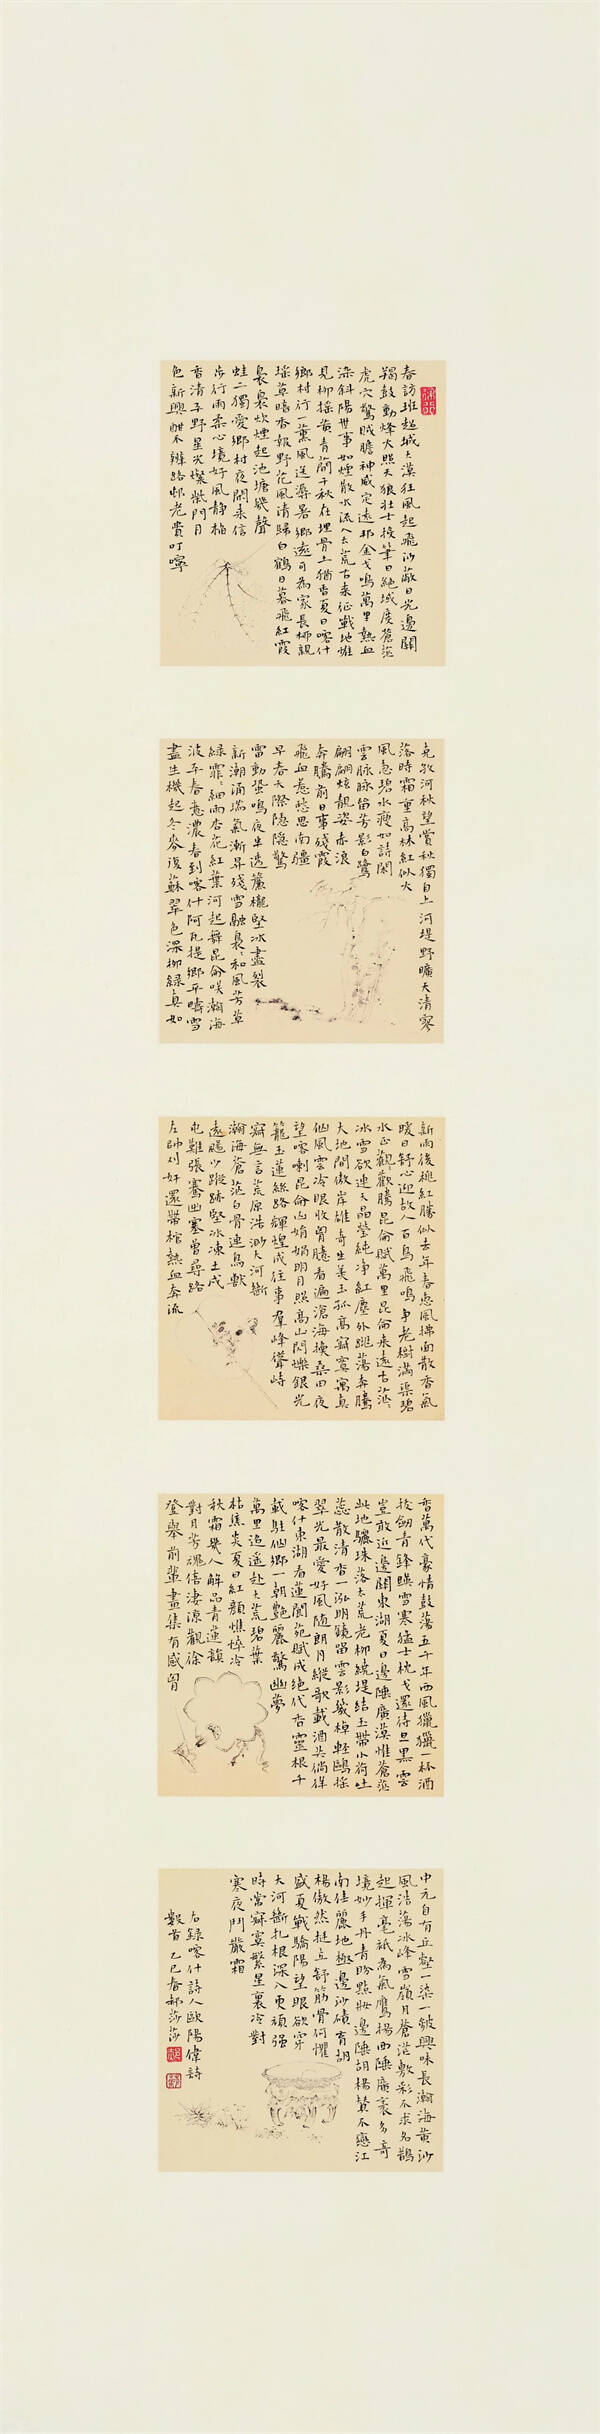 春訪班超城大漠狂風起飛沙蔽日光邊關
羯鼓動烽火照天狼壯士投筆日絕域度蒼茫
虎穴驚賊膽神威定遠邦金戈鳴萬里熱血
染斜陽世事如煙散水流入大荒古來征戰地惟
見柳搖黃青蘭千秋在埋骨土猶香夏日喀什
鄉村行一薰風送溽暑鄉遠可為家長柳親
搖草暗香報野花風清歸白鶴日暮飛紅霞
裊裊炊煙起池塘幾聲
蛙二獨愛鄉村夜閑來信
步行雨柔心境好風靜稻
香清平野星火燦柴門月
色新興酣不辨路邨老貴叮嚀
克孜河秋望賞秋獨自上河堤野曠天清寥
落時霜重高林紅似火
風急碧水瘦如詩閑
雲脉脉留芳影白鷺
翩翩炫靚姿赤浪
奔騰前日事殘霞
飛血惹愁思南疆
早春天際隱隱驚
雷動蛩鳴夜半透簾櫳堅冰盡裂
新潮涌瑞氣漸昇殘雪融裊裊和風芳草
綠霏霏細雨杏花紅葉河起舞昆侖咲瀚海
波平春意濃春到喀什阿瓦提鄉平疇雪
盡生機起冬麥復蘇翠色深柳綠真如
新雨後桃紅勝似去年春惠風拂面散香氣
暖日舒心迎故人百鳥飛鳴爭老樹滿渠碧
水正觀歡騰昆侖賦萬里昆侖來遠古茫茫
冰雪欲連天晶瑩純淨紅塵外跳蕩奔騰
大地間傲岸雄奇生美玉孤高寂寞寓真
仙風雲冷眼收胸臆看遍滄海換桑田夜
望喀喇昆侖山娟娟明月照高山閃爍銀光
籠玉蓮絲路輝煌成往事羣峰聳峙
寂無言荒原浩渺天河斷
瀚海蒼茫白骨連鳥獸
遠颺少蹤跡堅冰凍土戍
屯難張騫幽塞曾尋路
左帥刈奸還帶棺熱血奔流
香萬代豪情鼓蕩五千年西風獵獵一杯酒
拔劍青鋒暎雪寒猛士枕戈還待旦黑雲
豈敢近邊關東湖夏日邊陲廣漠惟蒼茫
此地驪珠落大荒老柳繞堤結玉帶小荷吐
蕊散清香一泓明鏡留雲影幾棹輕鷗採
翠光最愛好風随朗月縱歌載酒共徜徉
喀什東湖看蓮閬苑賦成绝代香靈根千
載駐仙鄉一朝艷麗驚幽夢
萬里迢遥赴大荒碧葉
枯焦炎夏日紅顏憔悴冷
秋霜幾人解品青蓮韻
對月芳魂倍淒涼觀徐
登舉前輩畫集有感胸
中元自有丘壑一染一皴興味長瀚海黃沙
風浩蕩冰峰雪嶺月蒼茫敷彩不求名鵲
起揮毫祇為氣鷹揚西陲廣袤多奇
境妙手丹青盼點妝邊陲胡楊贊不戀江
南佳麗地極邊沙磧育胡
楊傲然挺立舒筋骨何懼
盛夏戰驕陽望眼欲穿
大河斷扎根深入更頑强
時當寂寞繁星裏冷對
寒夜鬥嚴霜
右錄喀什詩人歐陽偉詩
數首乙巳春郝莎莎